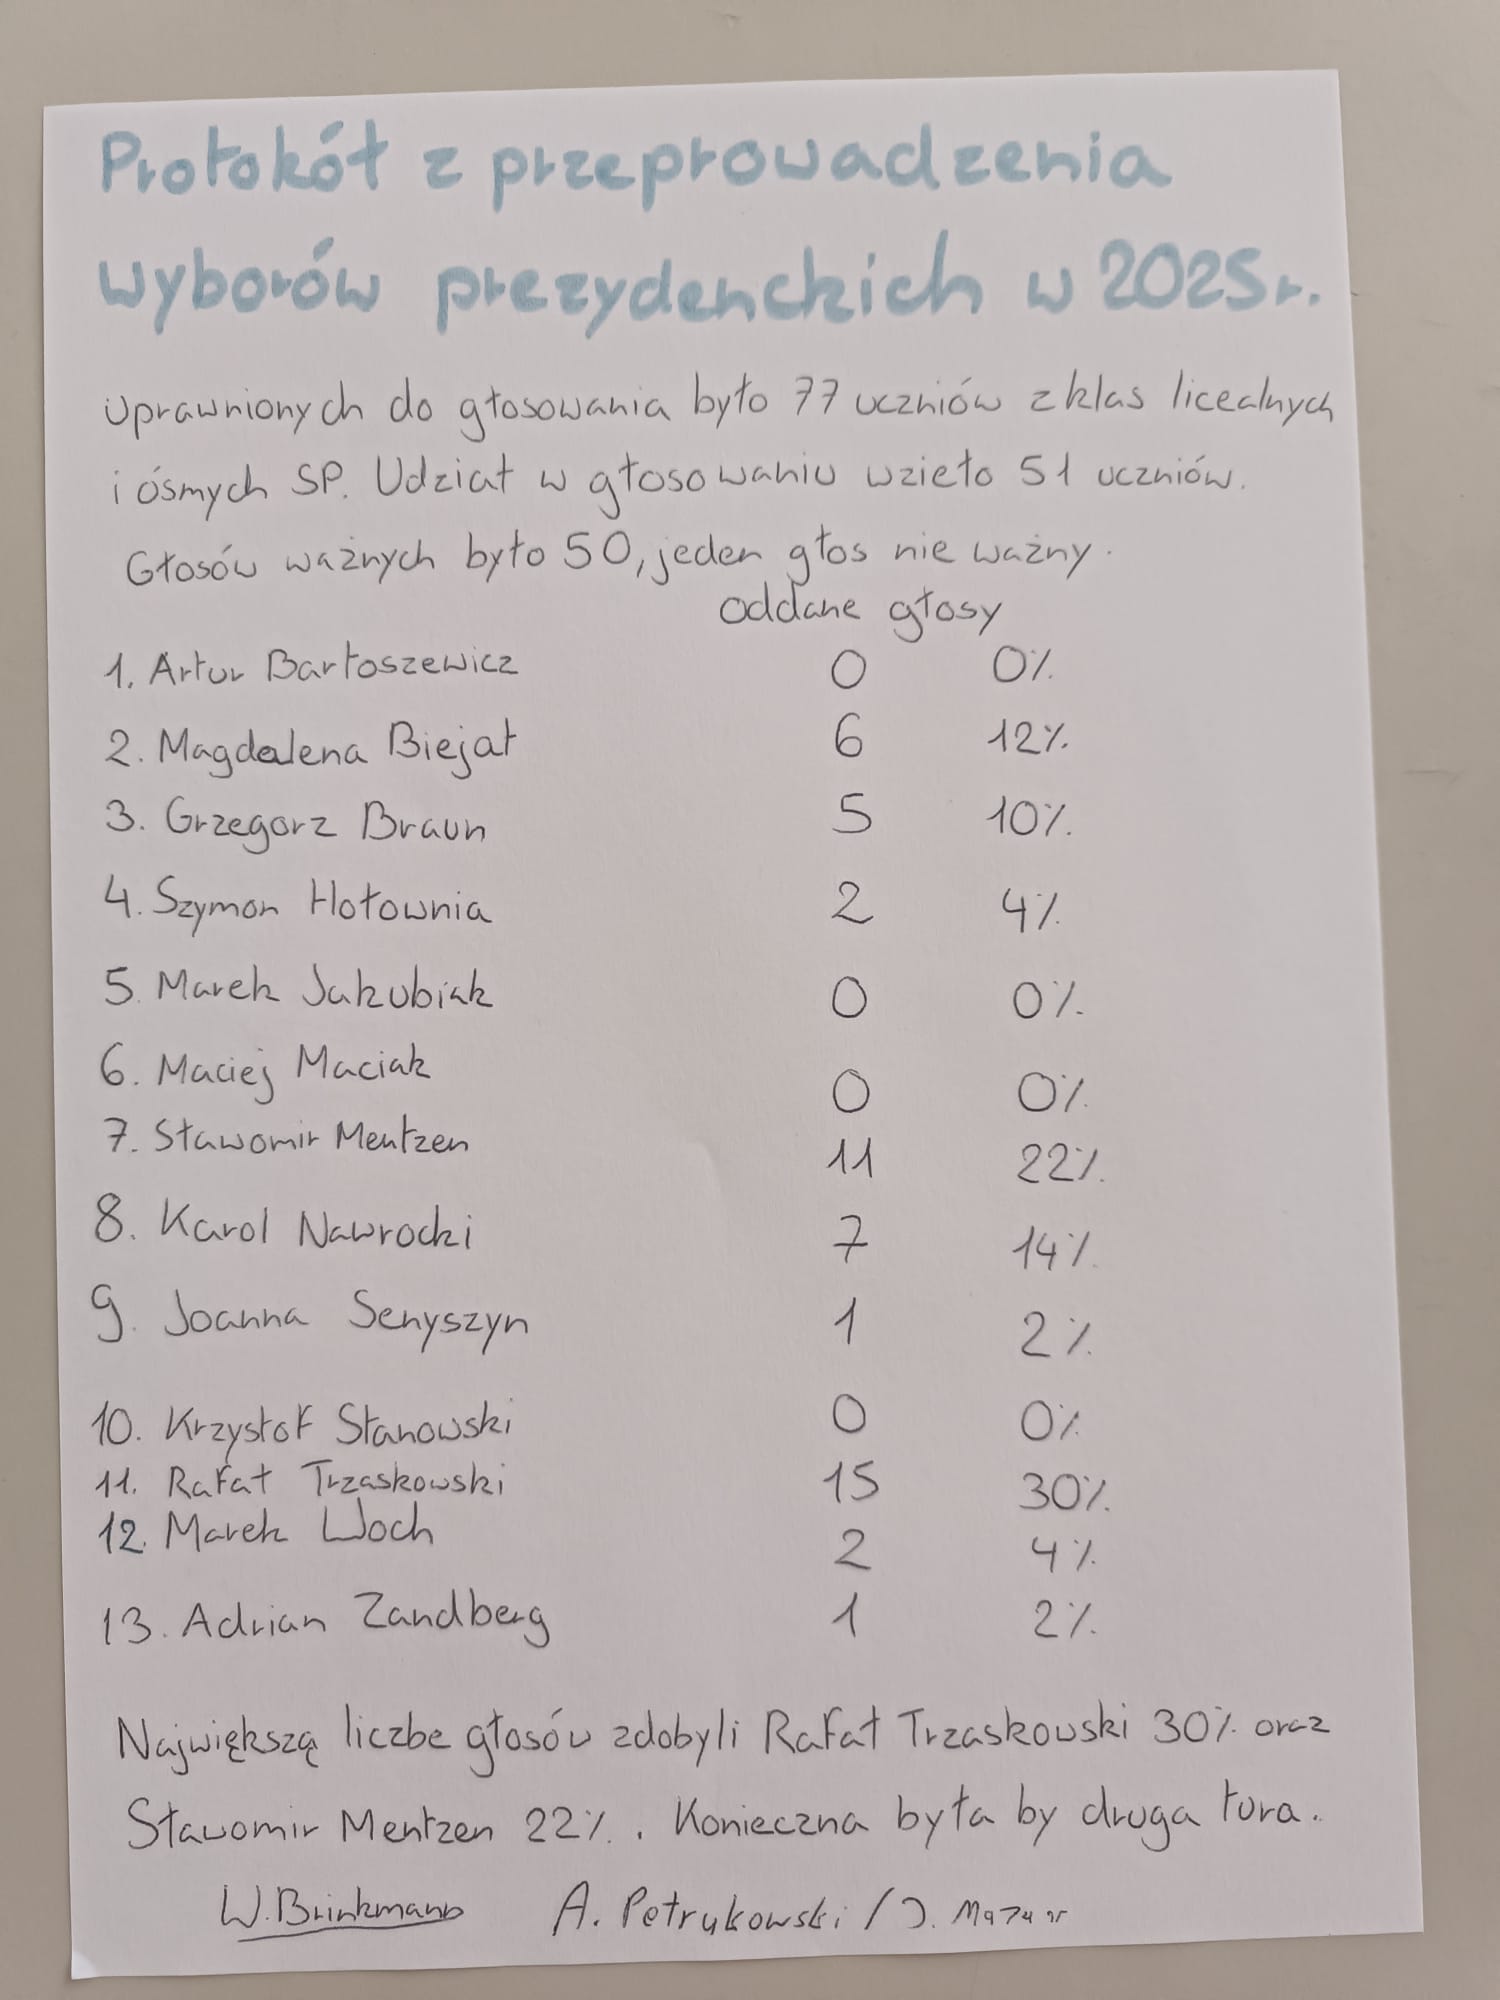 Protokół z przeprowadzenia
wyborów prezydenckich w 2025r.
Uprawnionych do głosowania było 77 uczniów z klas licealnych
i ósmych SP. Udział w głosowaniu wzieło 51 uczniów.
Głosów ważnych było 50, jeden głos nie ważny.
oddane głosy
1. Artur Bartoszewicz 0 0%
2. Magdalena Biejat 6 12%
3. Grzegorz Braun 5 10%
4. Szymon Hołownia 2 4%
5. Marek Jakubiak 0 0%
6. Maciej Maciak 0 0%
7. Sławomir Mentzen 11 22%
8. Karol Nawrocki 7 14%
9. Joanna Senyszyn 1 2%
10. Krzystof Stanowski 0 0%
11. Rafał Trzaskowski 15 30%
12. Marek Woch 2 4%
13. Adrian Zandberg 1 2%
Największą liczbe głosów zdobyli Rafał Trzaskowski 30% oraz
Sławomir Mentzen 22%. Konieczna była by druga tura.
W. Brinkmann A. Petrykowski / J. Mazur